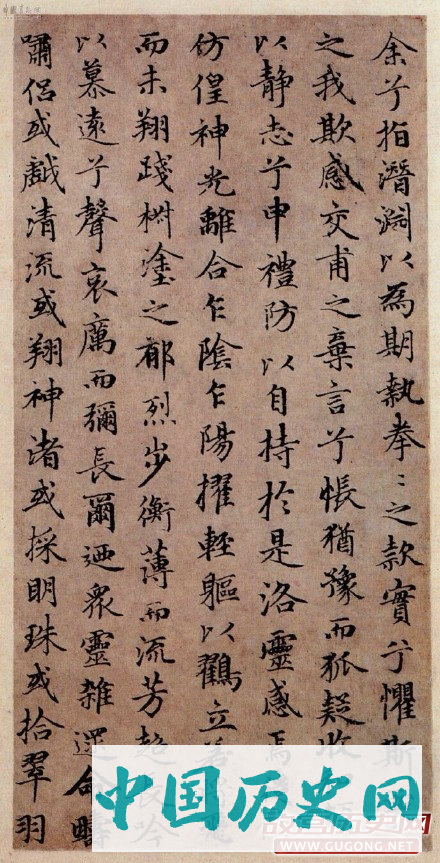 余兮指潛淵以為期執拳〻之款實兮懼斯
之我欺感交甫之棄言兮悵猶豫而狐疑收
以静志兮申禮防以自持於是洛靈感焉
仿偟神光離合乍陰乍陽擢輕軀以鶴立
而未翔踐椒塗之郁烈步衡薄而流芳超長吟
以慕遠兮聲哀厲而彌長爾迺衆靈雜遝命疇
嘯侶或戲清流或翔神渚或採明珠或拾翠羽
中国历史网
WWW.GUGONG.NET